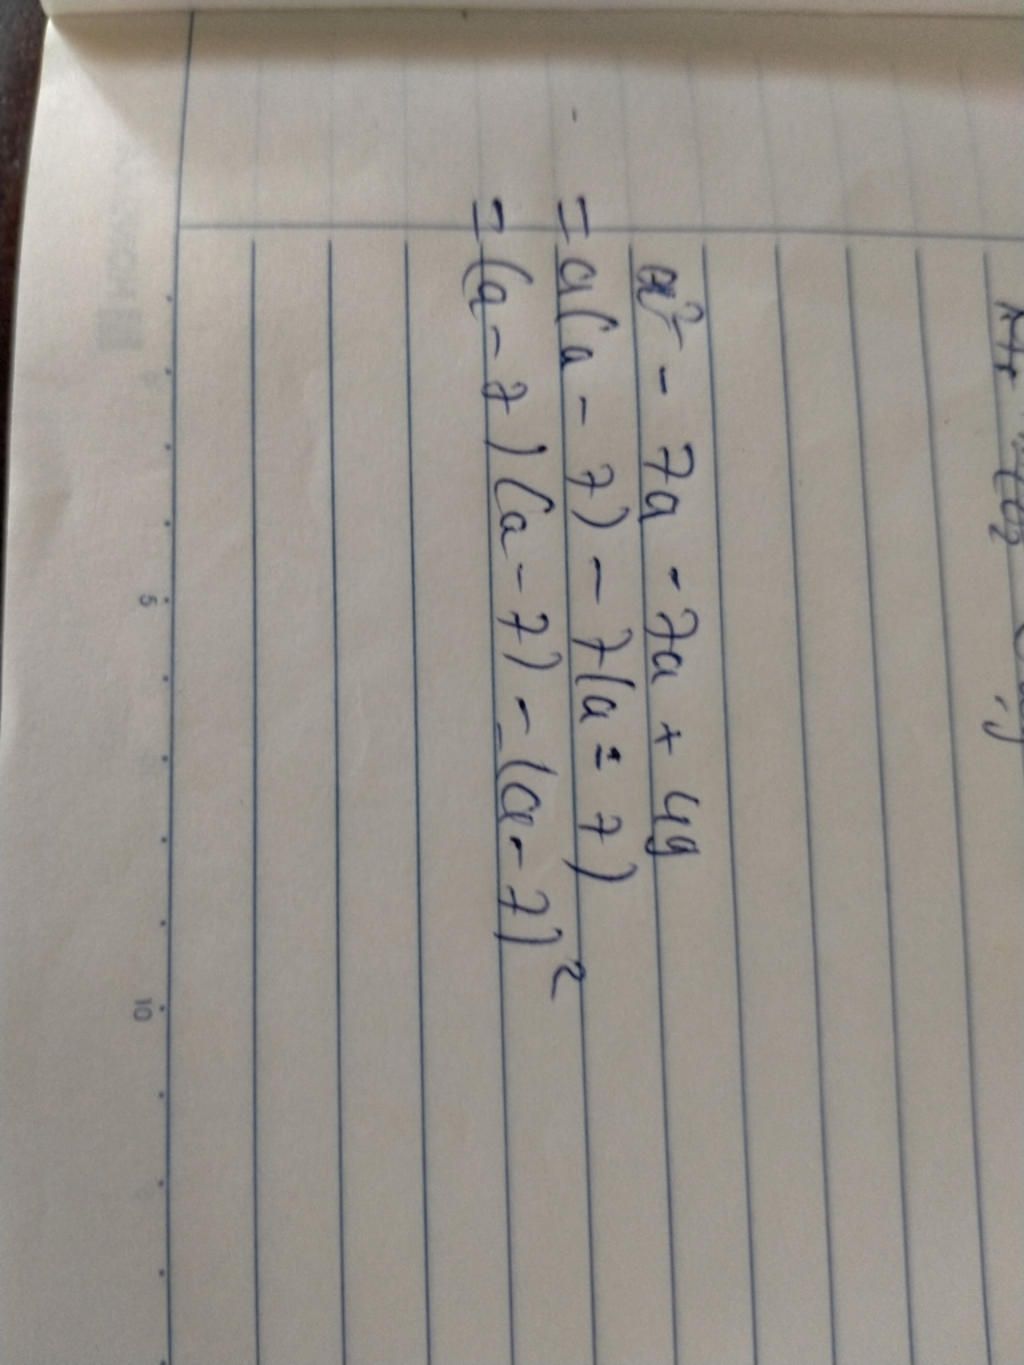 a² - 7a - 7a + 49
= a(a - 7) - 7(a = 7)
= (a - 7)(a - 7) - (a - 7)²
5
10